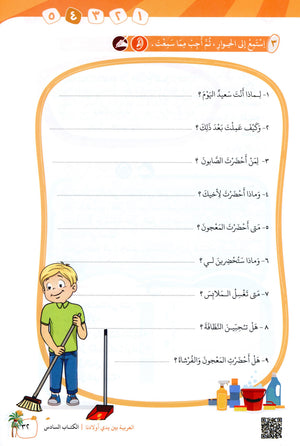 ١ ٢ ٣ ٤ ٥
٣ اِسْتَمِعْ إِلَى الحِوَارِ ، ثُمَّ أَجِبْ مِمَّا سَمِعْتَ .
١- لِـماذا أَنْتَ سَعِيدٌ اليَوْمَ ؟
٢- وَكَيْفَ عَمِلْتَ بَعْدَ ذَلِكَ ؟
٣- لِمَنْ أَحْضَرْتَ الصَّابونَ ؟
٤- وَماذا أَحْضَرْتَ لِأَخيكَ ؟
٥- مَتى أَحْضَرْتَ المَعْجونَ ؟
٦- وَماذا سَتُحْضِرينَ لـي ؟
٧- مَتى تَغْسِلُ الـمَلابِسَ ؟
٨- هَلْ تُحِبّينَ النَّظافَةَ ؟
٩- هَلْ أَحْضَرْتِ المَعْجونَ وَالفُرْشاةَ ؟
٣٢ الكتـاب السادس | العربية بين يدي أولادنا